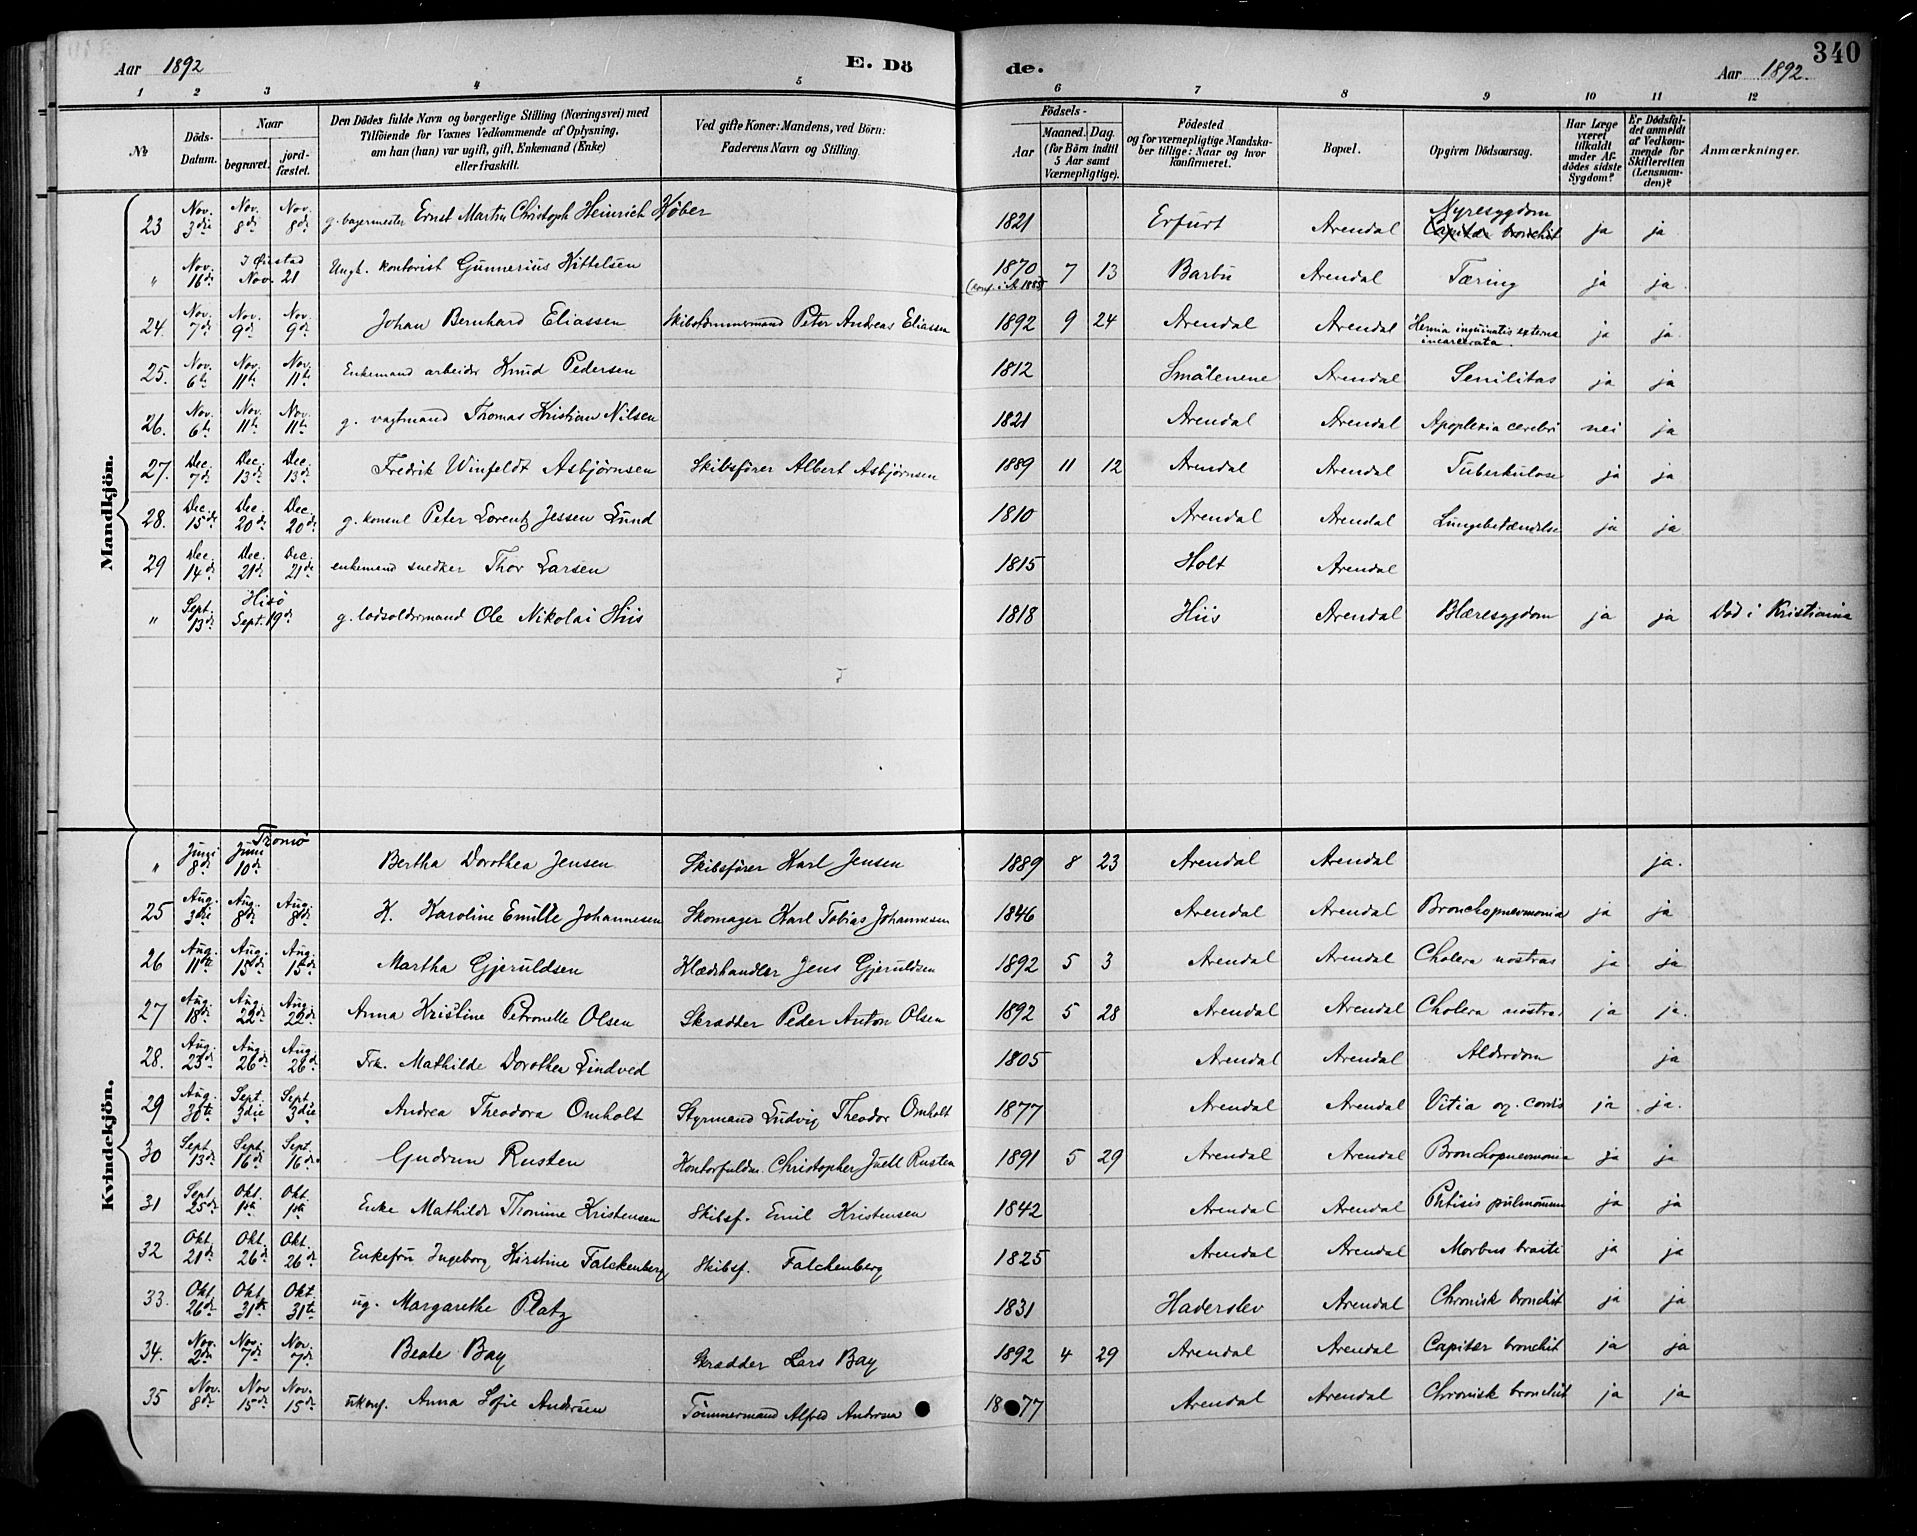 Aar 1892 E. Dö de. Aar 1892. 340
1 2 3 4 5 6 7 8 9 10 11 12
№ Döds-Datum. Naar begravet. jord-fæstet. Den Dödes fulde Navn og borgerlige Stilling (Næringsvei) med Tilföiende for Voxnes Vedkommende af Oplysning, om han (hun) var ugift, gift, Enkemand (Enke) eller fraskilt. Ved gifte Koner: Mandens, ved Börn: Faderens Navn og Stilling. Födsels- Aar Maaned. Dag. (for Börn indtil 5 Aar samt Værnepligtige). Födested og for værnepligtige Mandskaber tillige: Naar og hvor konfirmeret. Bopæl. Opgiven Dödsaarsag. Har Læge været tilkaldt under Afdödes sidste Sygdom? Er Dödsfaldet anmeldt af Vedkommende for Skifteretten (Lensmanden)? Anmærkninger.
Mandkjön.
23 Nov. 3die Nov. 8de Nov. 8de g. bagermester Ernst Martin Christoph Heinrich Köber 1821 Erfurt Arendal Nyresygdom Capitær bronchit ja ja
" Nov. 16de I Øiestad Nov. 21 Ungk. kontorist Gunnerius Kittelsen 1870 (konf. i A. 1885) 7 13 Barbu Arendal Tæring ja ja.
24. Nov. 7de Nov. 9de Nov. 9de Johan Bernhard Eliassen Skibstømmermand Peter Andreas Eliassen 1892 9 24 Arendal Arendal Hernia inguinalis externa incarcerata. ja ja.
25. Nov. 6te Nov. 11te Nov. 11te Enkemand arbeider Knud Pedersen 1812 Smålenene Arendal Senilitas ja ja
26. Nov. 6te Nov. 11te Nov. 11te g. vagtmand Thomas Kristian Nilsen 1821 Arendal Arendal Apoplexia cerebri nei ja
27. Dec. 7de Dec. 13de Dec. 13de Fredrik Winfeldt Asbjørnsen Skibsfører Albert Asbjørnsen 1889 11 12 Arendal Arendal Tuberkulose ja ja
28. Dec. 15de Dec. 20de Dec. 20de g. konsul Peter Lorentz Jessen Lund 1810 Arendal Arendal Lungebetændelse ja ja
29 Dec. 14de Dec. 21de Dec. 21de enkemand snedker Thor Larsen 1815 Holt Arendal
" Sept. 13de Hisö Sept. 19de g. lodsoldermand Ole Nikolai Hiis 1818 Hiis Arendal Blæresygdom ja ja Död i Kristiania
Kvindekjön.
" Juni 8de Juni 10de Tromö Bertha Dorothea Jensen Skibsfører Karl Jensen 1889 8 23 Arendal Arendal ja.
25 Aug. 3die Aug. 8de Aug. 8de K. Karoline Emilie Johannesen Skomager Karl Tobias Johannesen 1846 Arendal Arendal Bronchopneumonia ja ja
26 Aug. 11te Aug. 15de Aug. 15de Martha Gjeruldsen Klædshandler Jens Gjeruldsen 1892 5 3 Arendal Arendal Cholera nostras ja ja
27 Aug. 18de Aug. 22de Aug. 22de Anna Kristine Petronelle Olsen Skrædder Peder Anton Olsen 1892 5 28 Arendal Arendal Cholera nostras ja ja.
28. Aug. 23de Aug. 26de Aug. 26de Frk. Mathilde Dorothea Lindved 1805 Arendal Arendal Alderdom ja
29 Aug. 30te Sept. 3die Sept. 3die Andrea Theodora Omholt Styrmand Ludvig Theodor Omholt 1877 Arendal Arendal Vitia org. cordis ja ja.
30 Sept. 13de Sept. 16de Sept. 16de Gudrun Rusten Kontorfuldm. Christopher Juell Rusten 1891 5 29 Arendal Arendal Bronchopneumonia ja ja
31 Sept. 25de Okt. 1ste Okt. 1ste Enke Mathilde Thomine Kristensen Skibsf. Emil Kristensen 1842 Arendal Arendal Phtisis pulmonum ja ja
32 Okt. 21de Okt. 26de Okt. 26de Enkefru Ingeborg Kirstine Falckenberg Skibsf. Falchenberg 1825 Arendal Arendal Morbus ja ja
33. Okt. 26de Okt. 31te Okt. 31te ug. Margarethe Platz 1831 Haderslev Arendal Chronisk bronchit ja ja
34. Nov. 2den Nov. 7de Nov. 7de Beate Bay Skrædder Lars Bay 1892 4 29 Arendal Arendal Capitær bronchit ja ja
35 Nov. 8de Nov. 15de Nov. 15de ukonf. Anna Sofie Andersen Tömmermand Alfred Andersen 1877 Arendal Arendal Chronisk bronchit ja ja